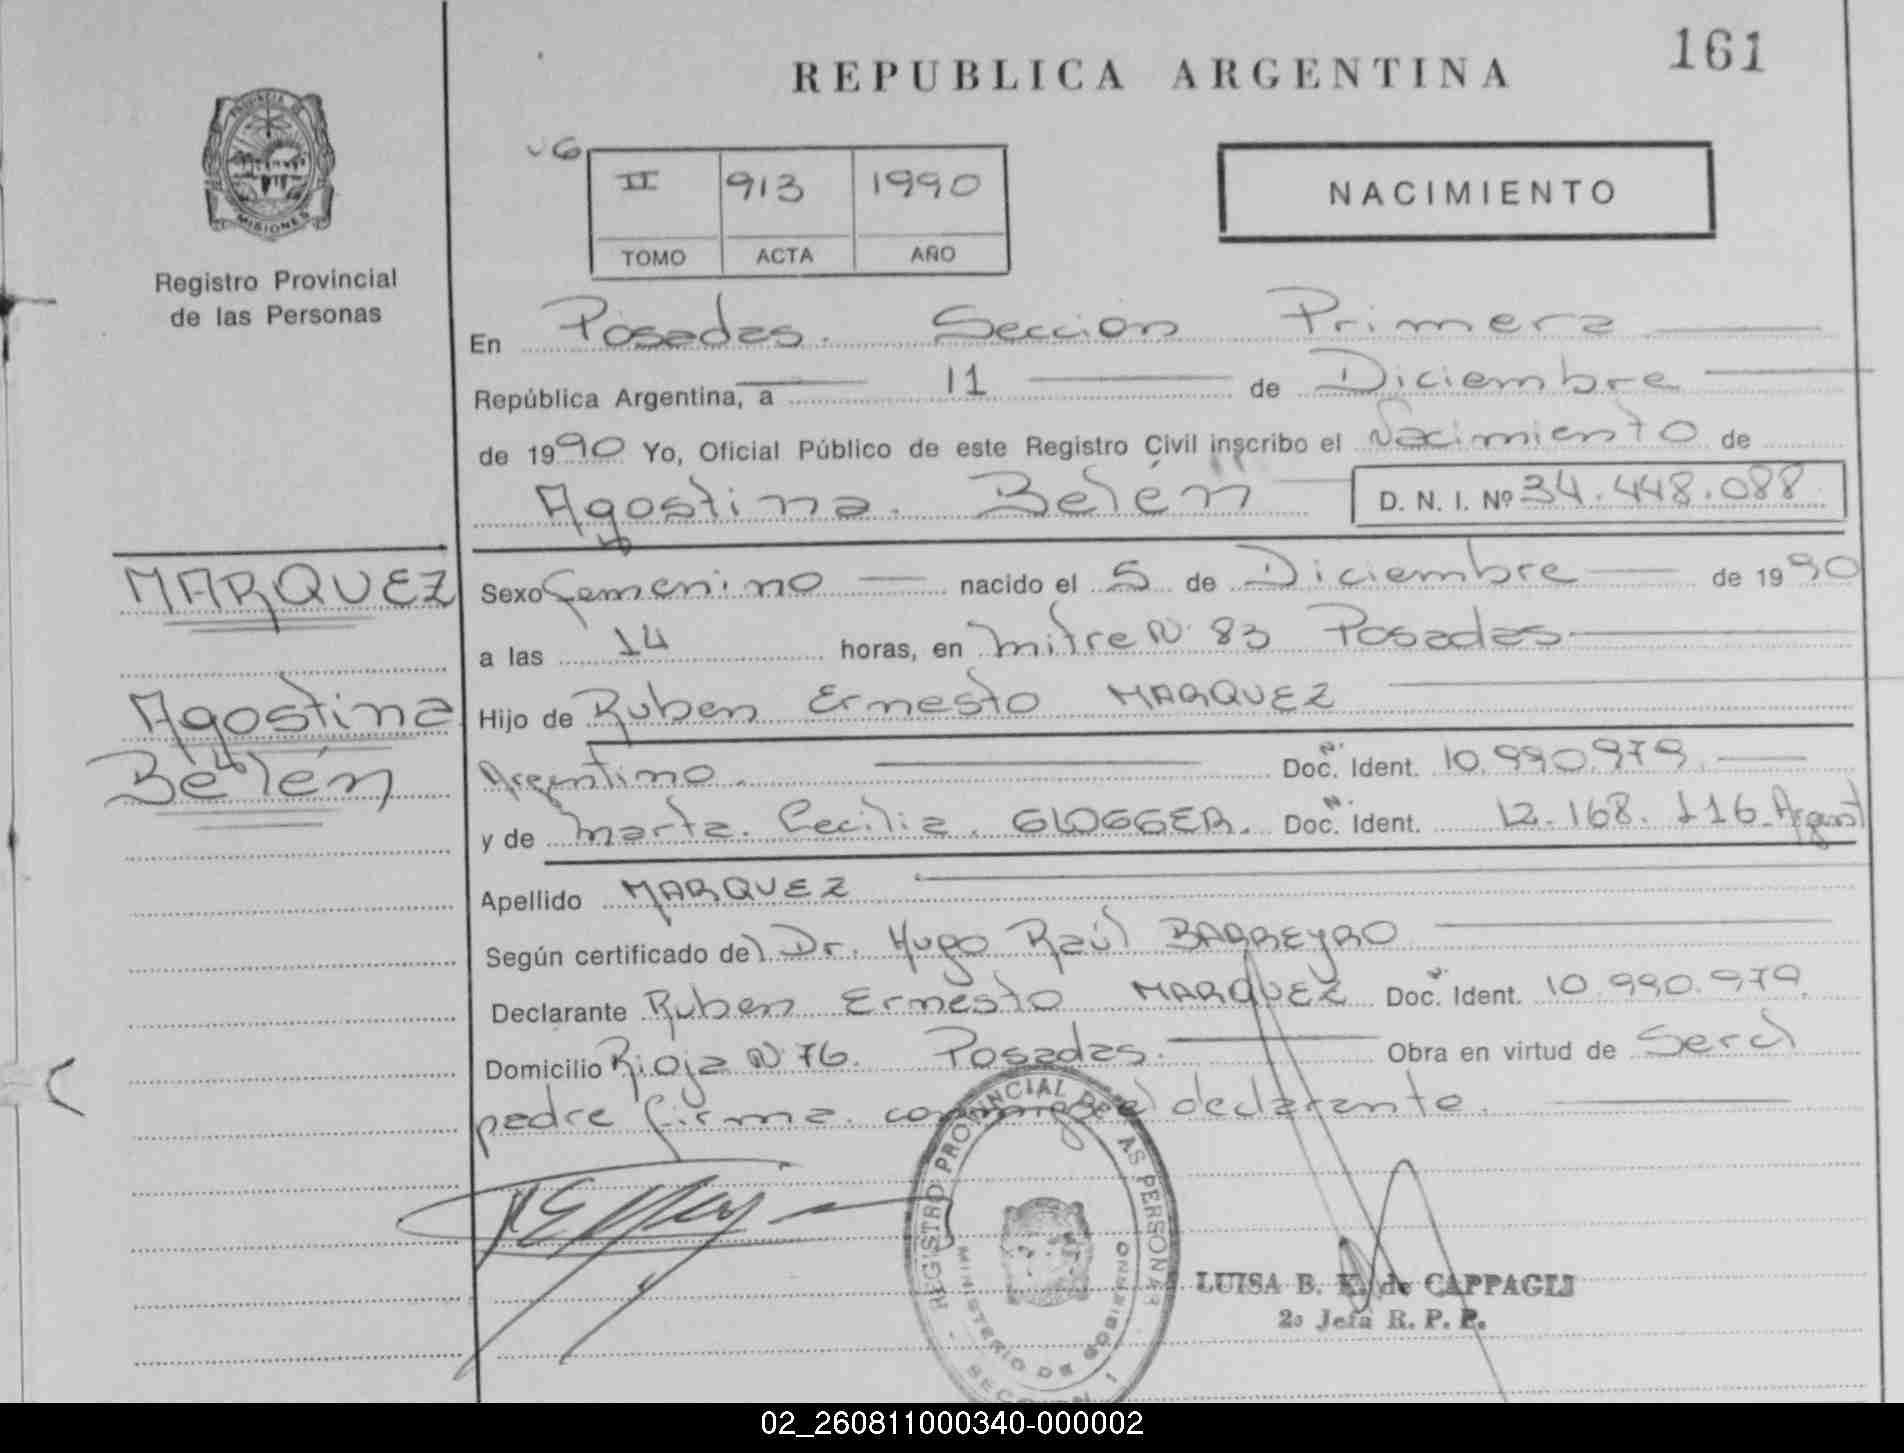 161
REPUBLICA ARGENTINA
PROVINCIA DE
MISIONES
Registro Provincial
de las Personas
II 913 1990
TOMO ACTA AÑO
NACIMIENTO
En Posadas. Seccion Primera
República Argentina, a 11 de Diciembre
de 1990 Yo, Oficial Público de este Registro Civil inscribo el Nacimiento de
Agostina. Belén D. N. I. Nº 34.448.088
MARQUEZ
Agostina
Belén
Sexo Femenino nacido el 5 de Diciembre de 1990
a las 14 horas, en Mitre N. 83 Posadas
Hijo de Ruben Ernesto MARQUEZ
Argentino. Doc. N. Ident. 10.990.979
y de Marta. Cecilia. GLOGGER. Doc. N. Ident. 12.168.116 Argent
Apellido MARQUEZ
Según certificado del Dr. Hugo Raúl BARREYRO
Declarante Ruben Ernesto MARQUEZ Doc. N. Ident. 10.990.979.
Domicilio Rioja N. 76. Posadas. Obra en virtud de Ser el
padre firma. conmigo el declarante.
REGISTRO PROVINCIAL DE LAS PERSONAS
MINISTERIO DE GOBIERNO
SECCION 1
LUISA B. K. de CAPPAGLI
2º Jefa R. P. P.
02_260811000340-000002